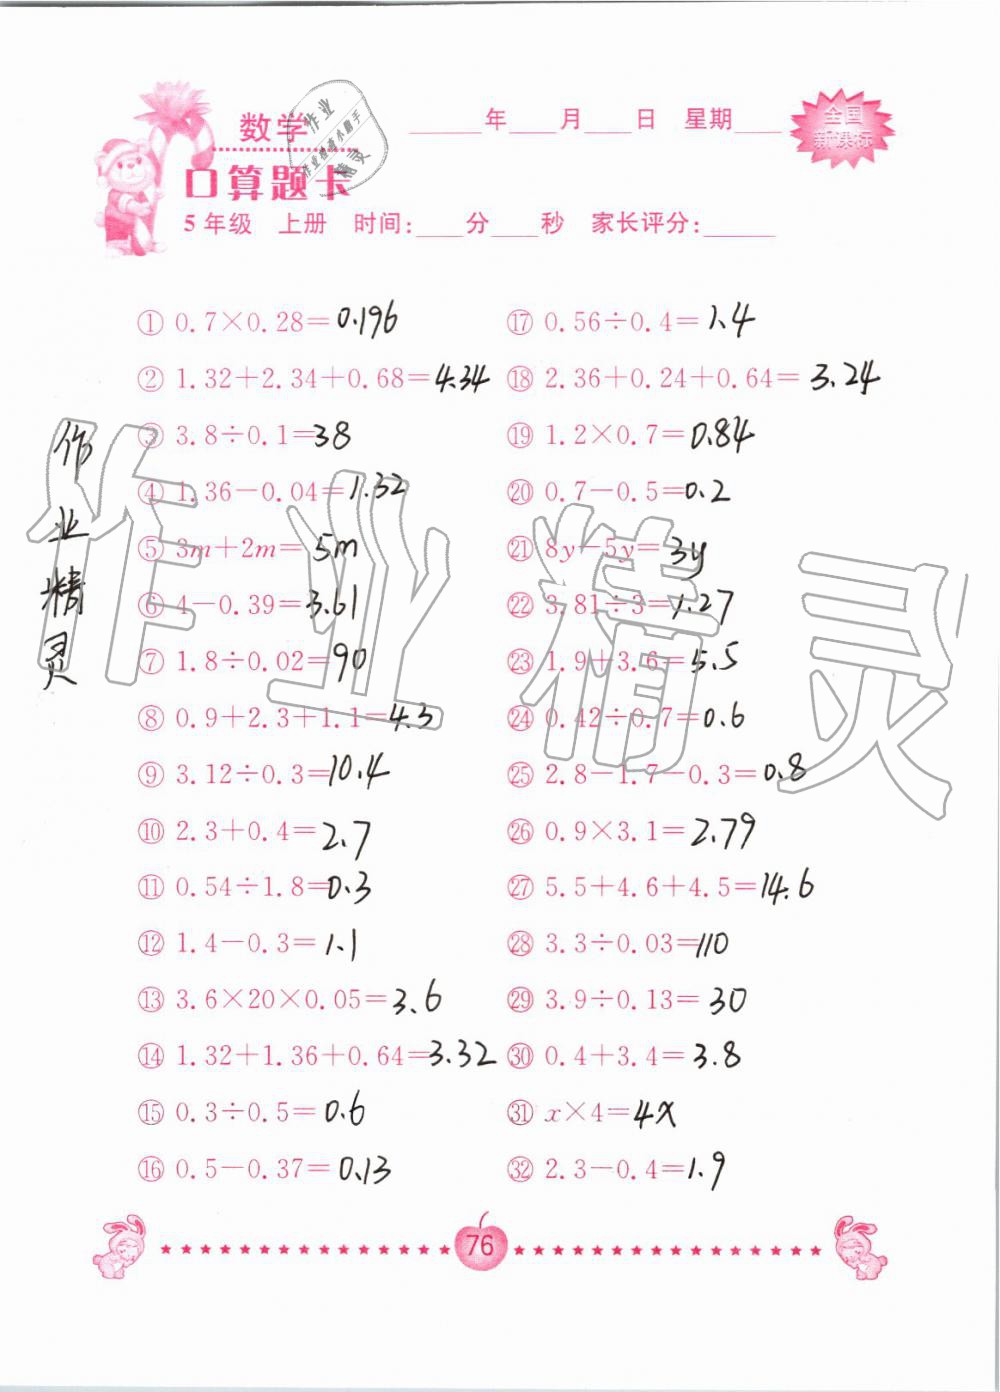 数学
口算题卡
____年____月____日 星期____
全国
新课标
5年级 上册 时间:____分____秒 家长评分:______
作业
作业检查小助手
精灵
① 0.7×0.28=0.196
② 1.32+2.34+0.68=4.34
③ 3.8÷0.1=38
④ 1.36-0.04=1.32
⑤ 3m+2m=5m
⑥ 4-0.39=3.61
⑦ 1.8÷0.02=90
⑧ 0.9+2.3+1.1=4.3
⑨ 3.12÷0.3=10.4
⑩ 2.3+0.4=2.7
⑪ 0.54÷1.8=0.3
⑫ 1.4-0.3=1.1
⑬ 3.6×20×0.05=3.6
⑭ 1.32+1.36+0.64=3.32
⑮ 0.3÷0.5=0.6
⑯ 0.5-0.37=0.13
⑰ 0.56÷0.4=1.4
⑱ 2.36+0.24+0.64=3.24
⑲ 1.2×0.7=0.84
⑳ 0.7-0.5=0.2
㉑ 8y-5y=3y
㉒ 3.81÷3=1.27
㉓ 1.9+3.6=5.5
㉔ 0.42÷0.7=0.6
㉕ 2.8-1.7-0.3=0.8
㉖ 0.9×3.1=2.79
㉗ 5.5+4.6+4.5=14.6
㉘ 3.3÷0.03=110
㉙ 3.9÷0.13=30
㉚ 0.4+3.4=3.8
㉛ x×4=4x
㉜ 2.3-0.4=1.9
作业精灵
作业精灵
76